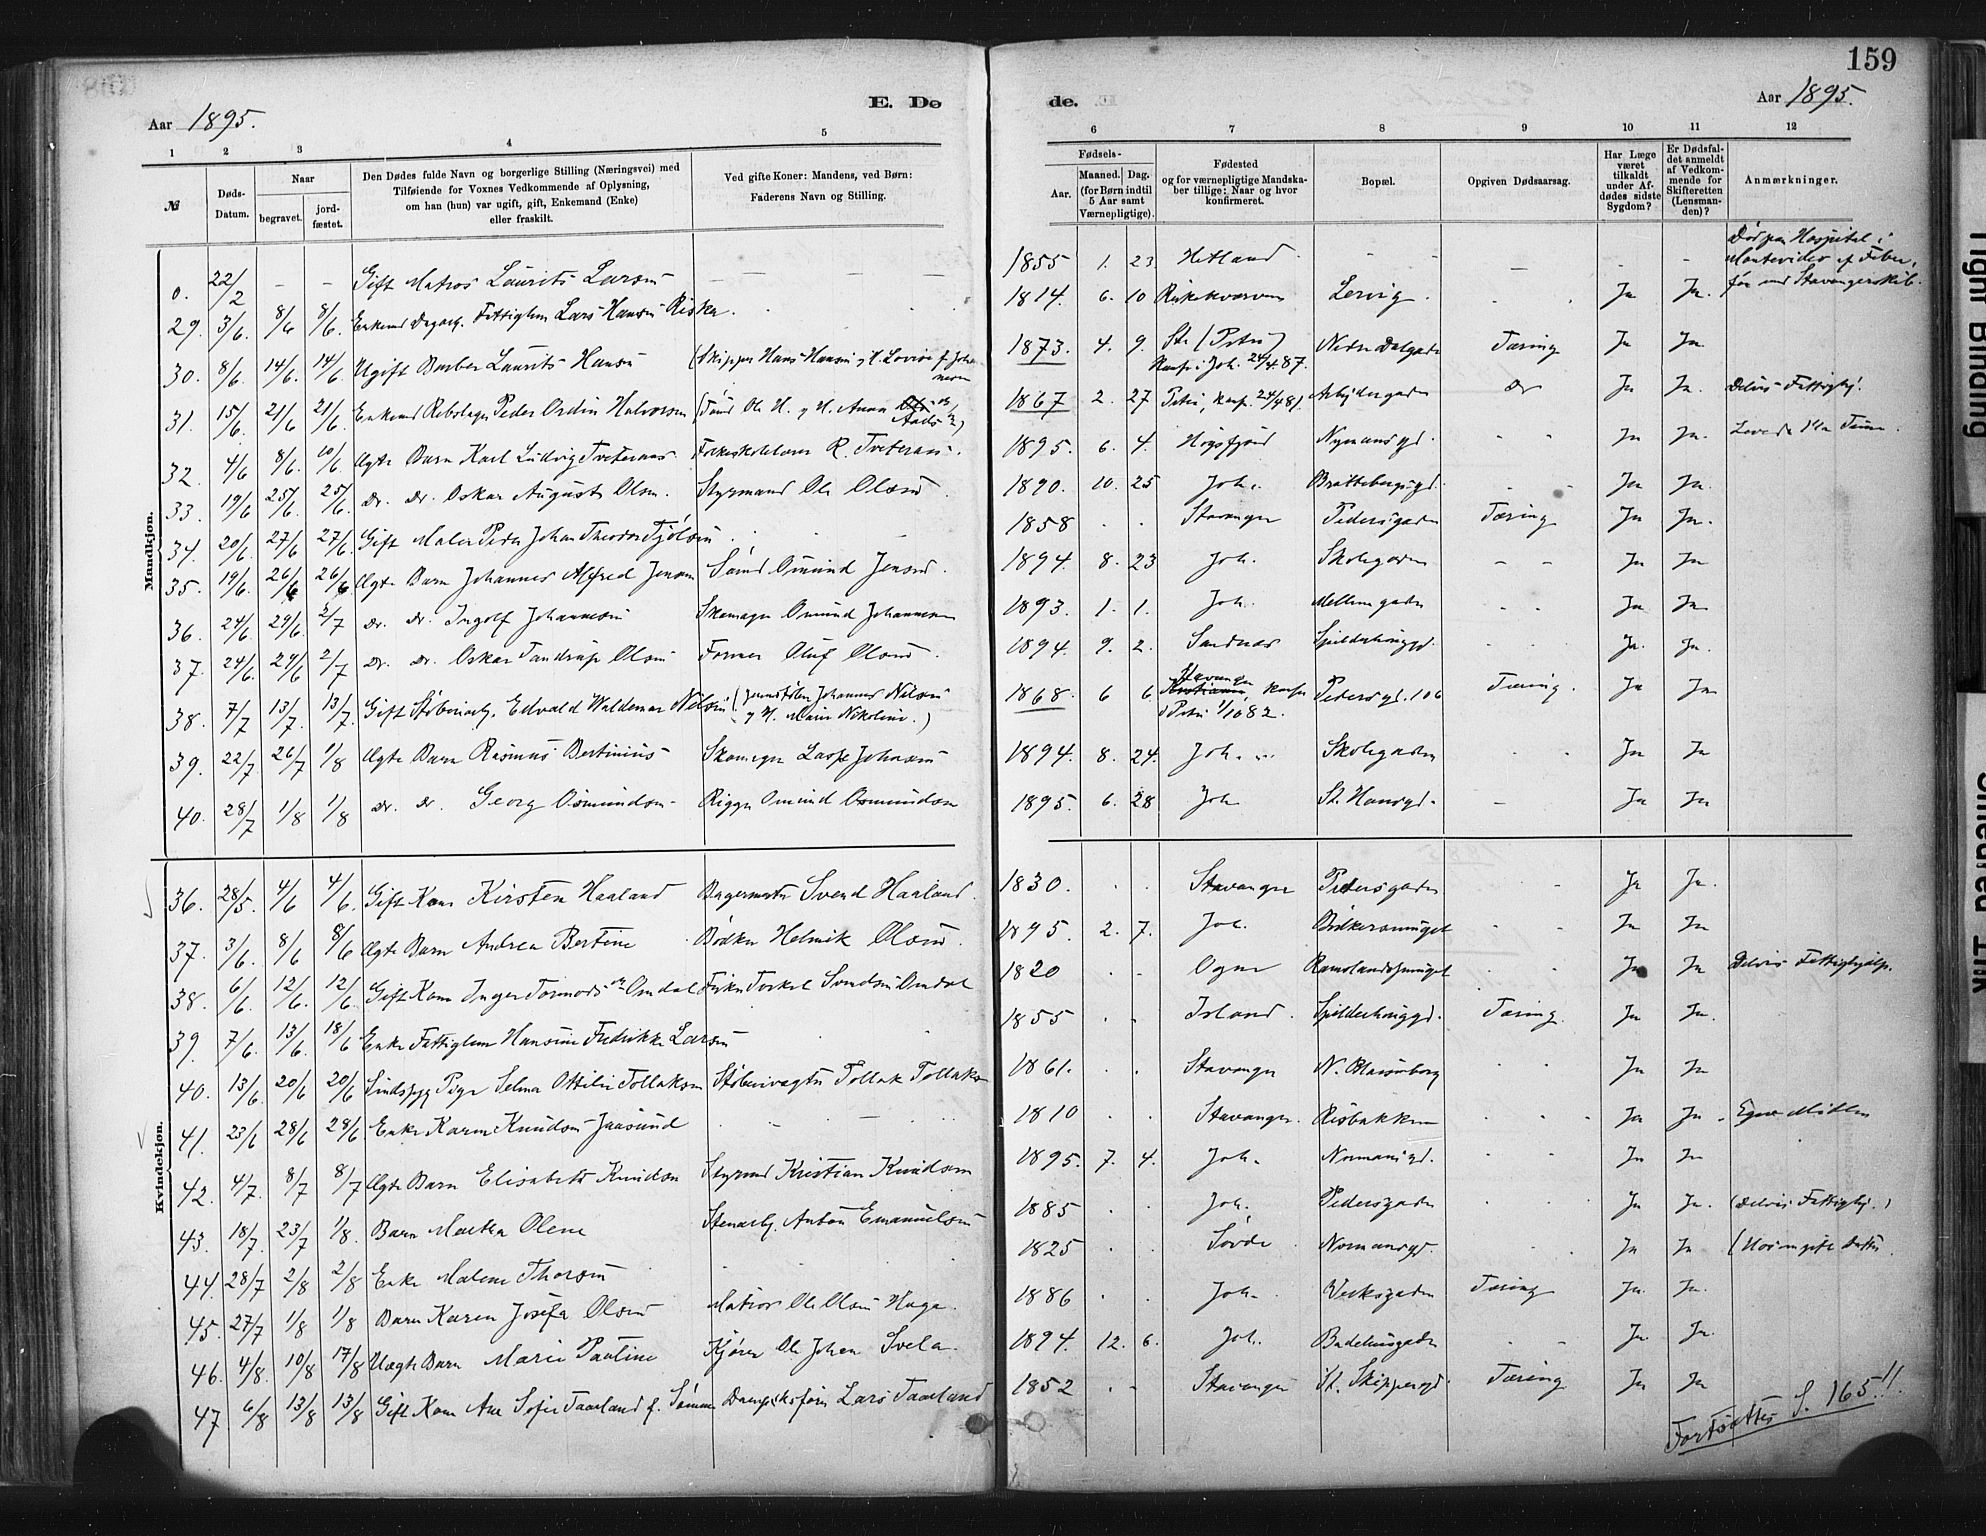 159
E. Dø de.
Aar 1895. Aar 1895.
1 2 3 4 5 6 7 8 9 10 11 12
№ Døds-Datum. Naar begravet. jordfæstet. Den Dødes fulde Navn og borgerlige Stilling (Næringsvei) med Tilføiende for Voxnes Vedkommende af Oplysning, om han (hun) var ugift, gift, Enkemand (Enke) eller fraskilt. Ved gifte Koner: Mandens, ved Børn: Faderens Navn og Stilling. Fødsels- Aar. Maaned. Dag. (for Børn indtil 5 Aar samt Værnepligtige). Fødested og for værnepligtige Mandskaber tillige: Naar og hvor konfirmeret. Bopæl. Opgiven Dødsaarsag. Har Læge været tilkaldt under Afdødes sidste Sygdom? Er Dødsfaldet anmeldt af Vedkommende for Skifteretten (Lensmanden)? Anmærkninger.
Mandkjøn.
0. 22/2 – – Gift Matros Laurits Larsen – – – 1855 1. 23 Hetland – – – – – Død paa Hospital i Montevideo af Feber, før med Stavangerskib.
29. 3/6 8/6 8/6. Enkemd Dagarb. Fattiglem Lars Hansen Riska 1814. 6. 10 Lervig Ja Ja.
30. 8/6. 14/6. 14/6. Ugift Barber Laurits Hansen (Skipper Hans Hansen 1873. 4. 9. St. (Petri) Konf. i Joh. 24/4 87. Nedre Dalgade Tæring Ja Ja
31. 15/6. 21/6 21/6. Enkemd Rebslager Peder Ordin Halvorsen 1867 2. 27 Petri, Konf. 24/4 81. Arbeidergaden Do Ja Ja. Delvis Fattighj.
32. 4/6 8/6. 10/6. Ægte Barn Karl Ludvig Tveteraas Folkeskolelærer R. Tveteraas. 1895. 6. 4. Høgsfjord Nymansgd. Ja Ja. Levede 1/2 Time.
33. 19/6 25/6. 25/6. Do. Do. Oskar August Olsen. Styrmand Ole Olsen 1890. 10. 25 Joh. Brattebergsgd. Ja Ja.
34. 20/6. 27/6 27/6. Gift Maler Peder Johan Theodor Tjølsen 1858 Stavanger Pedersgaden Tæring Ja Ja.
35. 19/6. 26/6 26/6 Ægte Barn Johannes Alfred Jensen Osmund Jensen. 1894. 8. 23 Joh. Skolegaden – – Ja Ja
36. 24/6. 29/6. 2/7 Do. Do. Ingolf Johannesen Skomager Osmund Johannesen 1893. 1. 1. Joh. Mellemgaden Ja Ja
37. 24/6. 29/6 2/7 Do. Do. Oskar Tandrup Olsen Former Oluf Olsen. 1894. 9. 2. Sandnes Spilderhauggd. Ja. Ja.
38. 7/7 13/7. 13/7. Gift Støberiarb. Edvald Waldemar Nilsen (Johannes Nilsen og H. Maren Nikoline.) 1868. 6 6 Stavanger Kristiania, Konf. i Petri 1/10 82. Pedersgd. 106 Tæring. Ja Ja
39. 22/7. 26/7 1/8 Ægte Barn Rasmus Bertinius Skomager Johnsen 1894. 8. 24. Joh. Skolegaden Ja Ja
40. 28/7 1/8 1/8 Do. Do. Georg Osmundsen Rigger Osmund Osmundsen 1895. 6. 28 Joh St. Hansgd. – Ja Ja
Kvindekjøn.
36. 28/5. 4/6 4/6. Gift Kone Kirsten Haaland Bagermester Svend Haaland. 1830. Stavanger Pedersgaden Ja Ja.
37. 3/6. 8/6 8/6 Ægte Barn Andrea Bertine Bødker Helmik Olsen. 1895. 2. 7. Joh. Bødkersmuget Ja Ja
38. 6/6. 12/6. 12/6. Gift Kone Inger Tormodsdr Omdal Fisker Torkel Svendsen Omdal 1820 Ogne Ramslandssmuget Ja Ja Delvis Fattighjælp.
39. 7/6. 13/6. 18/6 Enke Fattiglem Hansine Fredrikke Larsen 1855 Island. Spilderhauggd. Tæring. Ja Ja.
40. 13/6. 20/6 20/6 Sindssyg Pige Selma Ottilie Tollaksen Støberivægter Tollak Tollaksen 1861. Stavanger N. Blaasenborg Ja Ja
41. 23/6 28/6 28/6 Enke Karen Knudsen Jaasund 1810 Stavanger Risbakken Ja Ja. Egne Midler
42. 4/7. 8/7 8/7 Ægte Barn Elisabeth Knudsen Styrmd Kristian Knudsen 1895. 7. 4. Joh. Normansgd. Ja Ja
43. 18/7. 23/7 1/8. Barn Martha Olene Stenarb. Anton Emanuelsen 1885 Joh. Pedersgaden Ja Ja. (Delvis Fattighj.)
44. 28/7 2/8 2/8 Enke Malene Thorsen 1825 Søvde Normansgd. Ja Ja (Hos en gift Datter.
45. 27/7 1/8 1/8 Barn Karen Josefa Olsen Matros Ole Olsen Haga. 1886 Joh. Verksgaden Tæring Ja. Ja.
46. 4/8. 10/8 17/8 Uægte Barn Marie Pauline Kjører Ole Johan Svela. 1894. 12. 6. Joh. Badehusgaden – – Ja. Ja.
47. 6/8 13/8 13/8 Gift Kone Ane Sofie Taarland f. Sømme Dampskibsfører Lars Taarland 1852 Stavanger St. Skippergd. Tæring Ja Ja
Fortsættes S. 165!!